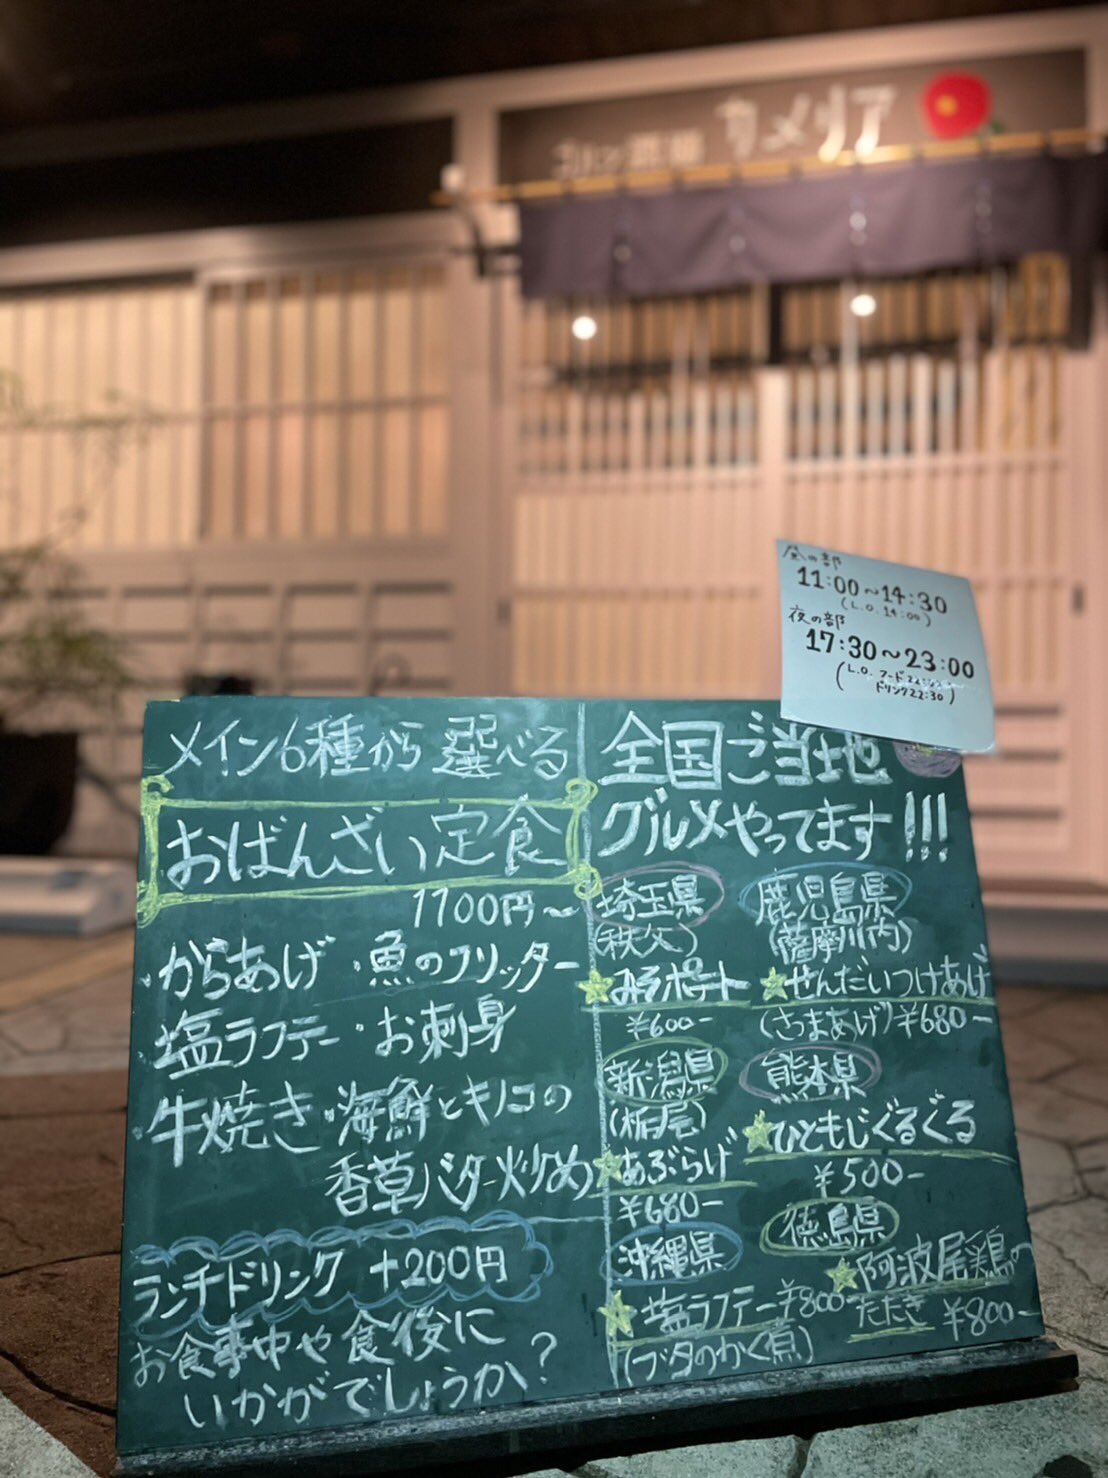 カメリア
昼の部
11:00~14:30
(L.O. 14:00)
夜の部
17:30~23:00
(L.O. フード
ドリンク22:30)
メイン6種から選べる
おばんざい定食
1100円~
・からあげ ・魚のフリッター
・塩ラフテー ・お刺身
・牛焼き ・海鮮とキノコの
香草バター炒め
ランチドリンク +200円
お食事中や食後に
いかがでしょうか?
全国ご当地
グルメやってます!!!
埼玉県
(秩父)
★みそポテト
¥600-
鹿児島県
(薩摩川内)
★せんだいつけあげ
(さつまあげ)¥680-
新潟県
(栃尾)
★あぶらげ
¥680-
熊本県
★ひともじぐるぐる
¥500-
沖縄県
★塩ラフテー¥800-
(ブタのかく煮)
徳島県
★阿波尾鶏の
たたき ¥800-